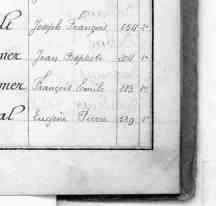 ll Joseph François 154 v°
mer Jean Baptiste 201 v°
mer François Emile 183 v°
al Eugène Pierre 129 v°